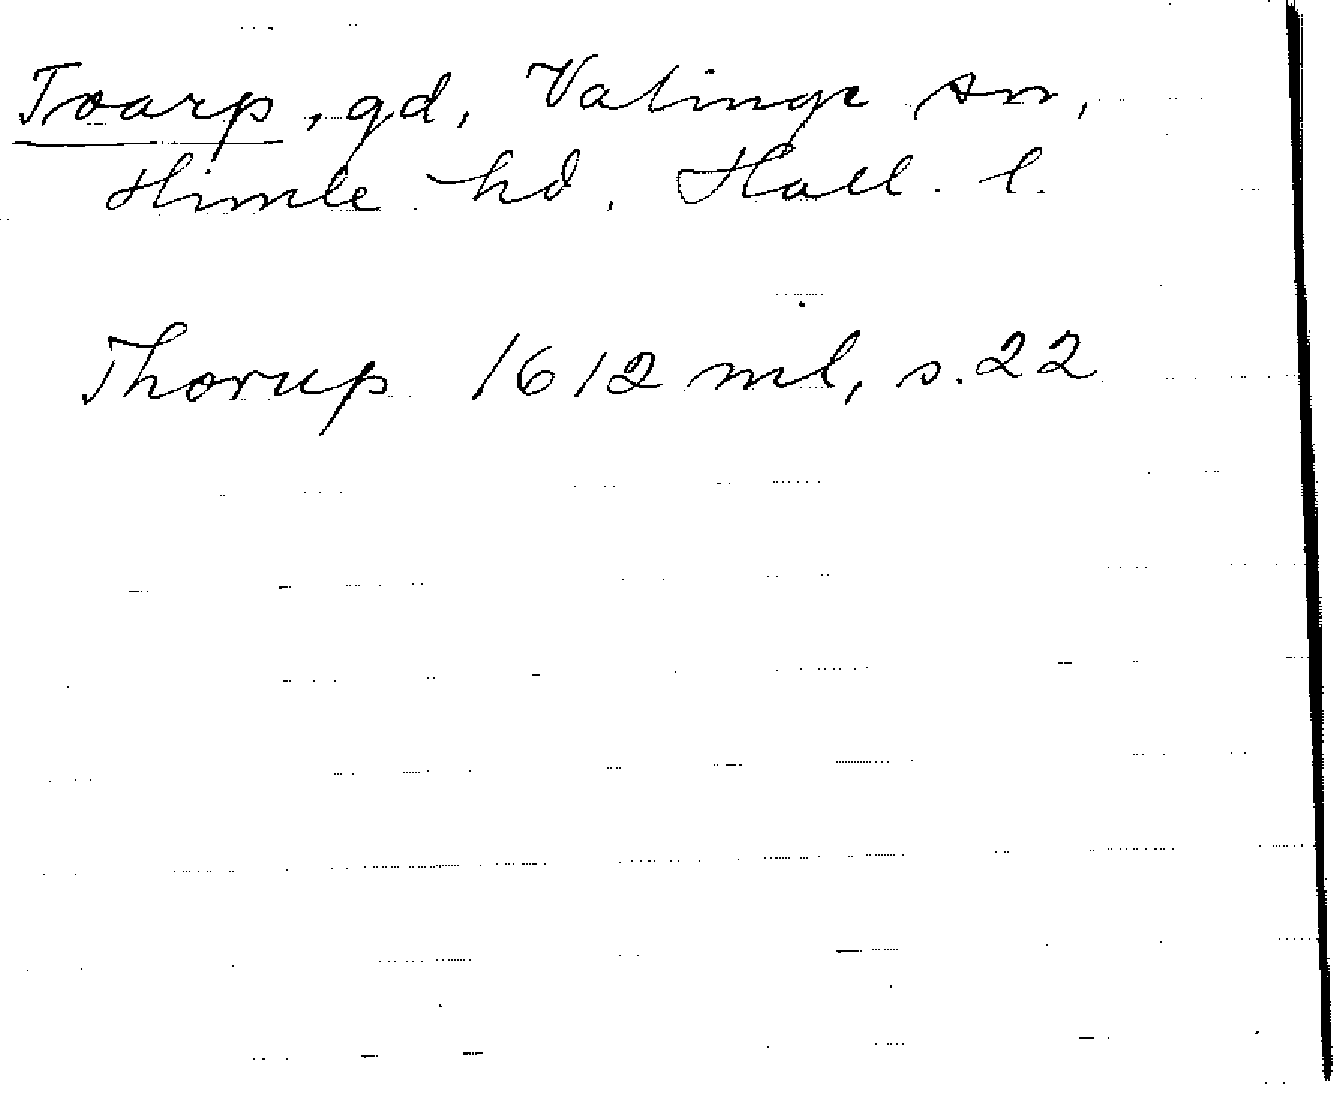 Toarp, gd, Valinge sn,
Himle hd, Hall. l.
Thorup 1612 ml, s. 22